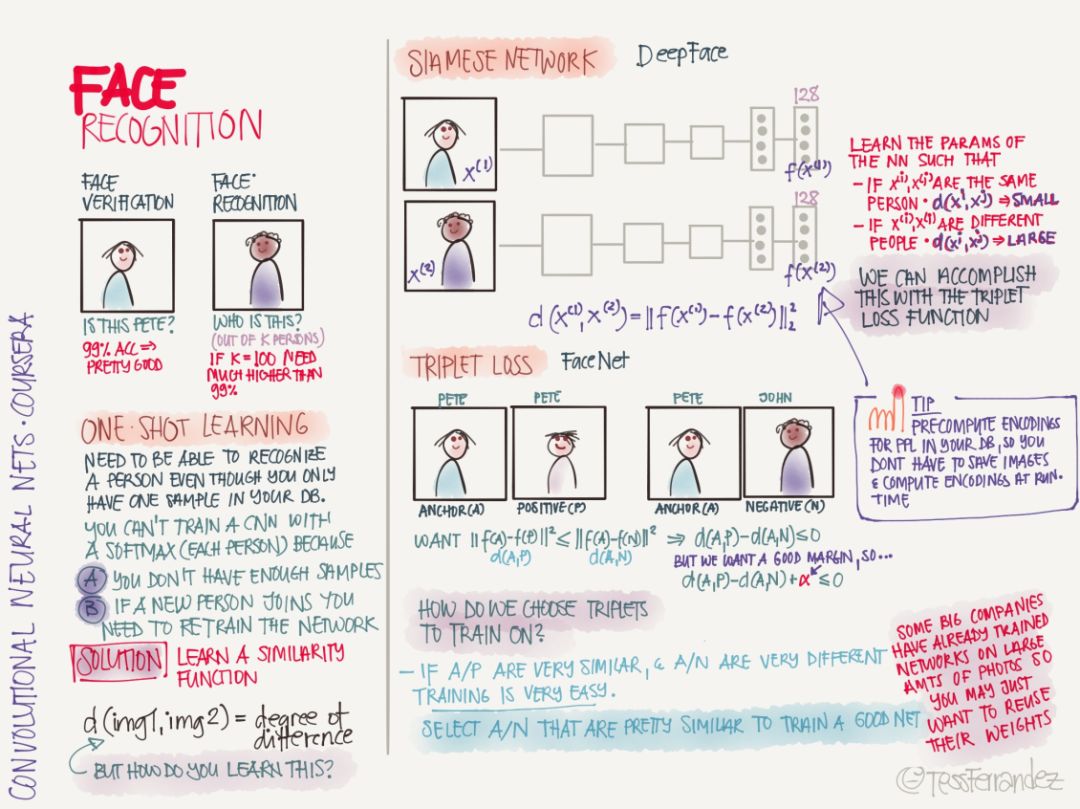 CONVOLUTIONAL NEURAL NETS · COURSERA
FACE
RECOGNITION
FACE
VERIFICATION
IS THIS PETE?
99% ACC ⇒
PRETTY GOOD
FACE·
RECOGNITION
WHO IS THIS?
(OUT OF K PERSONS)
IF K=100 NEED
MUCH HIGHER THAN
99%
ONE-SHOT LEARNING
NEED TO BE ABLE TO RECOGNIZE
A PERSON EVEN THOUGH YOU ONLY
HAVE ONE SAMPLE IN YOUR DB.
YOU CAN'T TRAIN A CNN WITH
A SOFTMAX (EACH PERSON) BECAUSE
A YOU DON'T HAVE ENOUGH SAMPLES
B IF A NEW PERSON JOINS YOU
NEED TO RETRAIN THE NETWORK
SOLUTION LEARN A SIMILARITY
FUNCTION
d(img1, img2) = degree of
difference
BUT HOW DO YOU LEARN THIS?
SIAMESE NETWORK DeepFace
x⁽¹⁾
128
f(x⁽¹⁾)
x⁽²⁾
128
f(x⁽²⁾)
d(x⁽¹⁾, x⁽²⁾) = ||f(x⁽¹⁾) - f(x⁽²⁾)||²₂
LEARN THE PARAMS OF
THE NN SUCH THAT
- IF x⁽ⁱ⁾, x⁽ʲ⁾ ARE THE SAME
PERSON · d(xⁱ, xʲ) ⇒ SMALL
- IF x⁽ⁱ⁾, x⁽ʲ⁾ ARE DIFFERENT
PEOPLE · d(xⁱ, xʲ) ⇒ LARGE
WE CAN ACCOMPLISH
THIS WITH THE TRIPLET
LOSS FUNCTION
TIP
PRECOMPUTE ENCODINGS
FOR PPL IN YOUR DB, SO YOU
DONT HAVE TO SAVE IMAGES
& COMPUTE ENCODINGS AT RUN-
TIME
TRIPLET LOSS FaceNet
PETE PETE PETE JOHN
ANCHOR (A) POSITIVE (P) ANCHOR (A) NEGATIVE (N)
WANT ||f(A)-f(P)||² ≤ ||f(A)-f(N)||² ⇒ d(A,P)-d(A,N) ≤ 0
d(A,P) d(A,N)
BUT WE WANT A GOOD MARGIN, SO...
d(A,P)-d(A,N)+α ≤ 0
HOW DO WE CHOOSE TRIPLETS
TO TRAIN ON?
- IF A/P ARE VERY SIMILAR, & A/N ARE VERY DIFFERENT
TRAINING IS VERY EASY.
SELECT A/N THAT ARE PRETTY SIMILAR TO TRAIN A GOOD NET
SOME BIG COMPANIES
HAVE ALREADY TRAINED
NETWORKS ON LARGE
AMTS OF PHOTOS SO
YOU MAY JUST
WANT TO REUSE
THEIR WEIGHTS
@TessFerrandez